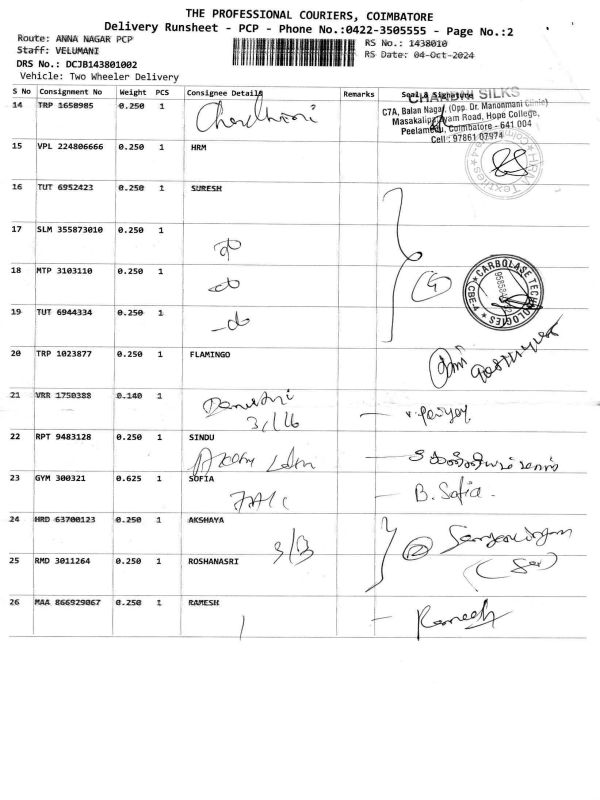 THE PROFESSIONAL COURIERS, COIMBATORE
Delivery Runsheet - PCP - Phone No.:0422-3505555 - Page No.:2
Route: ANNA NAGAR PCP
RS No.: 1438010
Staff: VELUMANI
RS Date: 04-Oct-2024
DRS No.: DCJB143801002
Vehicle: Two Wheeler Delivery
S No Consignment No Weight PCS Consignee Details Remarks Seal & Signature
14 TRP 1650985 0.250 1
CHANDNI SILKS
C7A, Balan Nagar, (Opp. Dr. Manonmani Clinic)
Masakalipalayam Road, Hope College,
Peelamedu, Coimbatore - 641 004
Cell : 97861 07974
15 VPL 224806666 0.250 1 HRM
HRM Textiles
16 TUT 6952423 0.250 1 SURESH
17 SLM 355873010 0.250 1
18 MTP 3103110 0.250 1
5
CARBOLASE TECHNOLOGIES
CBE-4
19 TUT 6944334 0.250 1
20 TRP 1023877 0.250 1 FLAMINGO
21 VRR 1750388 0.140 1
3/16
22 RPT 9483128 0.250 1 SINDU
23 GYM 300321 0.625 1 SOFIA
B. Sofia.
24 HRD 63700123 0.250 1 AKSHAYA
3/13
25 RMD 3011264 0.250 1 ROSHANASRI
26 MAA 866929067 0.250 1 RAMESH
Ramesh